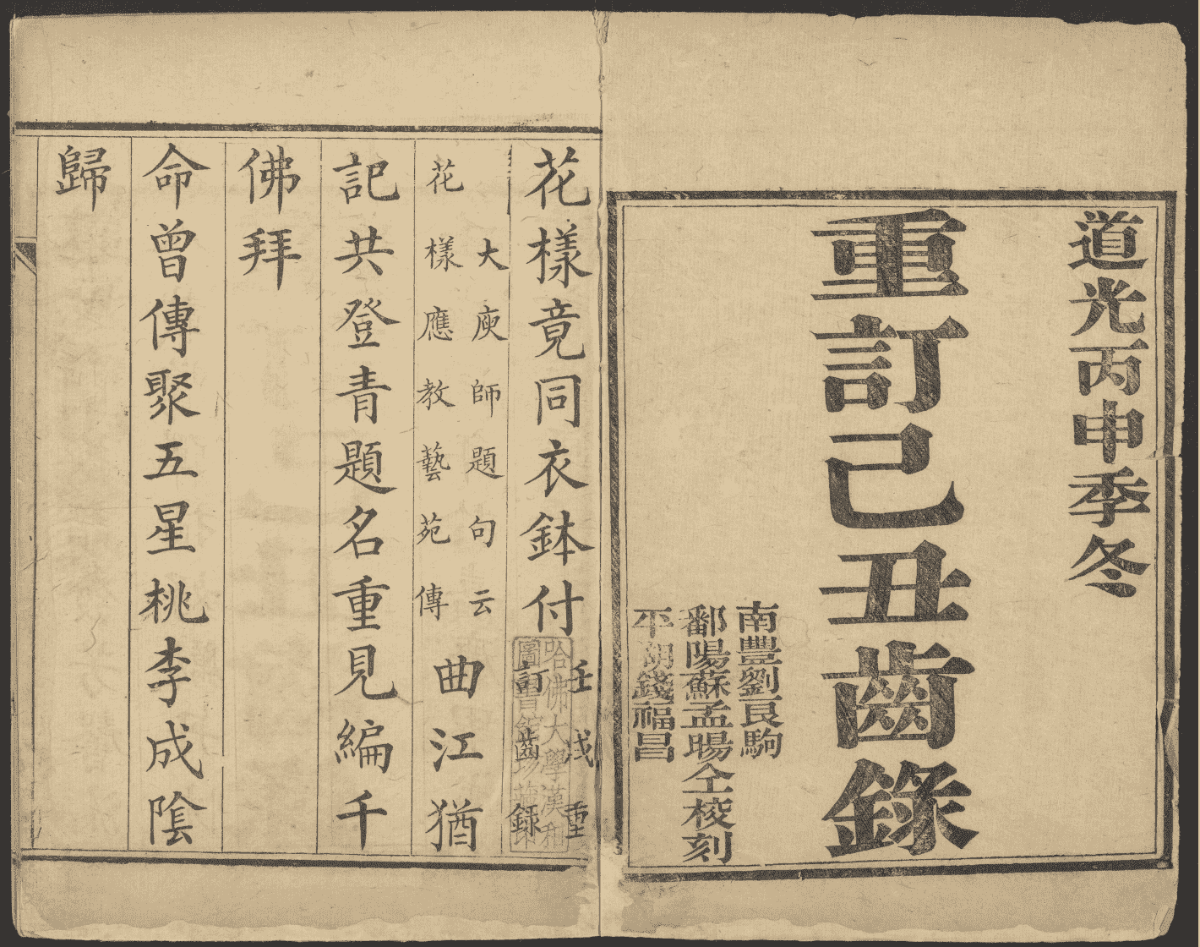 道光丙申季冬
重訂己丑齒錄
南豐劉良駒
鄱陽蘇孟暘仝校刻
平湖錢福昌
花樣竟同衣鉢付
壬戌重
訂齒錄
大庾師題句云
花樣應教藝苑傳
曲江猶
記共登青題名重見編千
佛拜
命曾傳聚五星桃李成陰
歸
哈佛大學漢和
圖書館珍藏印